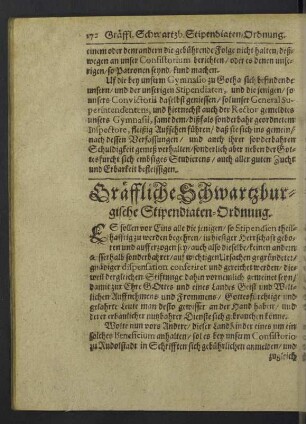 172 Gräffl. Schwartzb. Stipendiaten-Ordnung.
einem oder dem andern die gebührende Folge nicht halten/ deß-
wegen an unser Consistorium berichten/ oder es denen unse-
rigen/ so Patronen seynd/ kund machen.
Uf die bey unserm Gymnasio zu Gotha sich befindende
unsern/ und der unserigen Stipendiaten/ und die jenigen/ so
unsers Convictorii daselbst geniessen/ sol unser General Su-
perintendens, und hiernechst auch der Rector gemeldtes
unsers Gymnasii, samt dem/ dißfals sonderbahr geordnetem
Inspectore, fleissig Auffsehen führen/ daß sie sich ins gemein/
nach dessen Verfassungen/ und auch ihrer sonderbahren
Schuldigkeit gemeß verhalten/ sonderlich aber neben der Got-
tesfurcht sich embsiges Studierens/ auch aller guten Zucht
und Erbarkeit befleissigen.
Gräffliche Schwartzbur-
gische Stipendiaten-Ordnung.
ES sollen vor Eins alle die jenigen/ so Stipendien theil-
hafftig zu werden begehren/ in hiesiger Herrschafft geboh-
ren und aufferzogen seyn/ auch also dieselbe keinen andern/
ausserhalb sonderbahrer/ auf wichtigen Ursachen gegründeter/
gnädiger dispensation conferiret und gereichet werden/ die-
weil dergleichen Stifftunge dahin vornemlich gemeinet seyn/
damit zur Ehre GOttes und eines Landes Geist- und Welt-
lichen Auffnehmens und Frommens/ Gottesfürchtige und
gelehrte Leute man desto gewisser an der Hand haben/ und
derer ersprießlicher nutzbahrer Dienste sich gebrauchen könne.
Wolte nun vors Andere/ dieser Landkinder eines um ein
solches Beneficium anhalten/ sol es bey unserm Consistorio
zu Rudolstadt in Schrifften sich gebührlichen anmelden/ und
zugleich